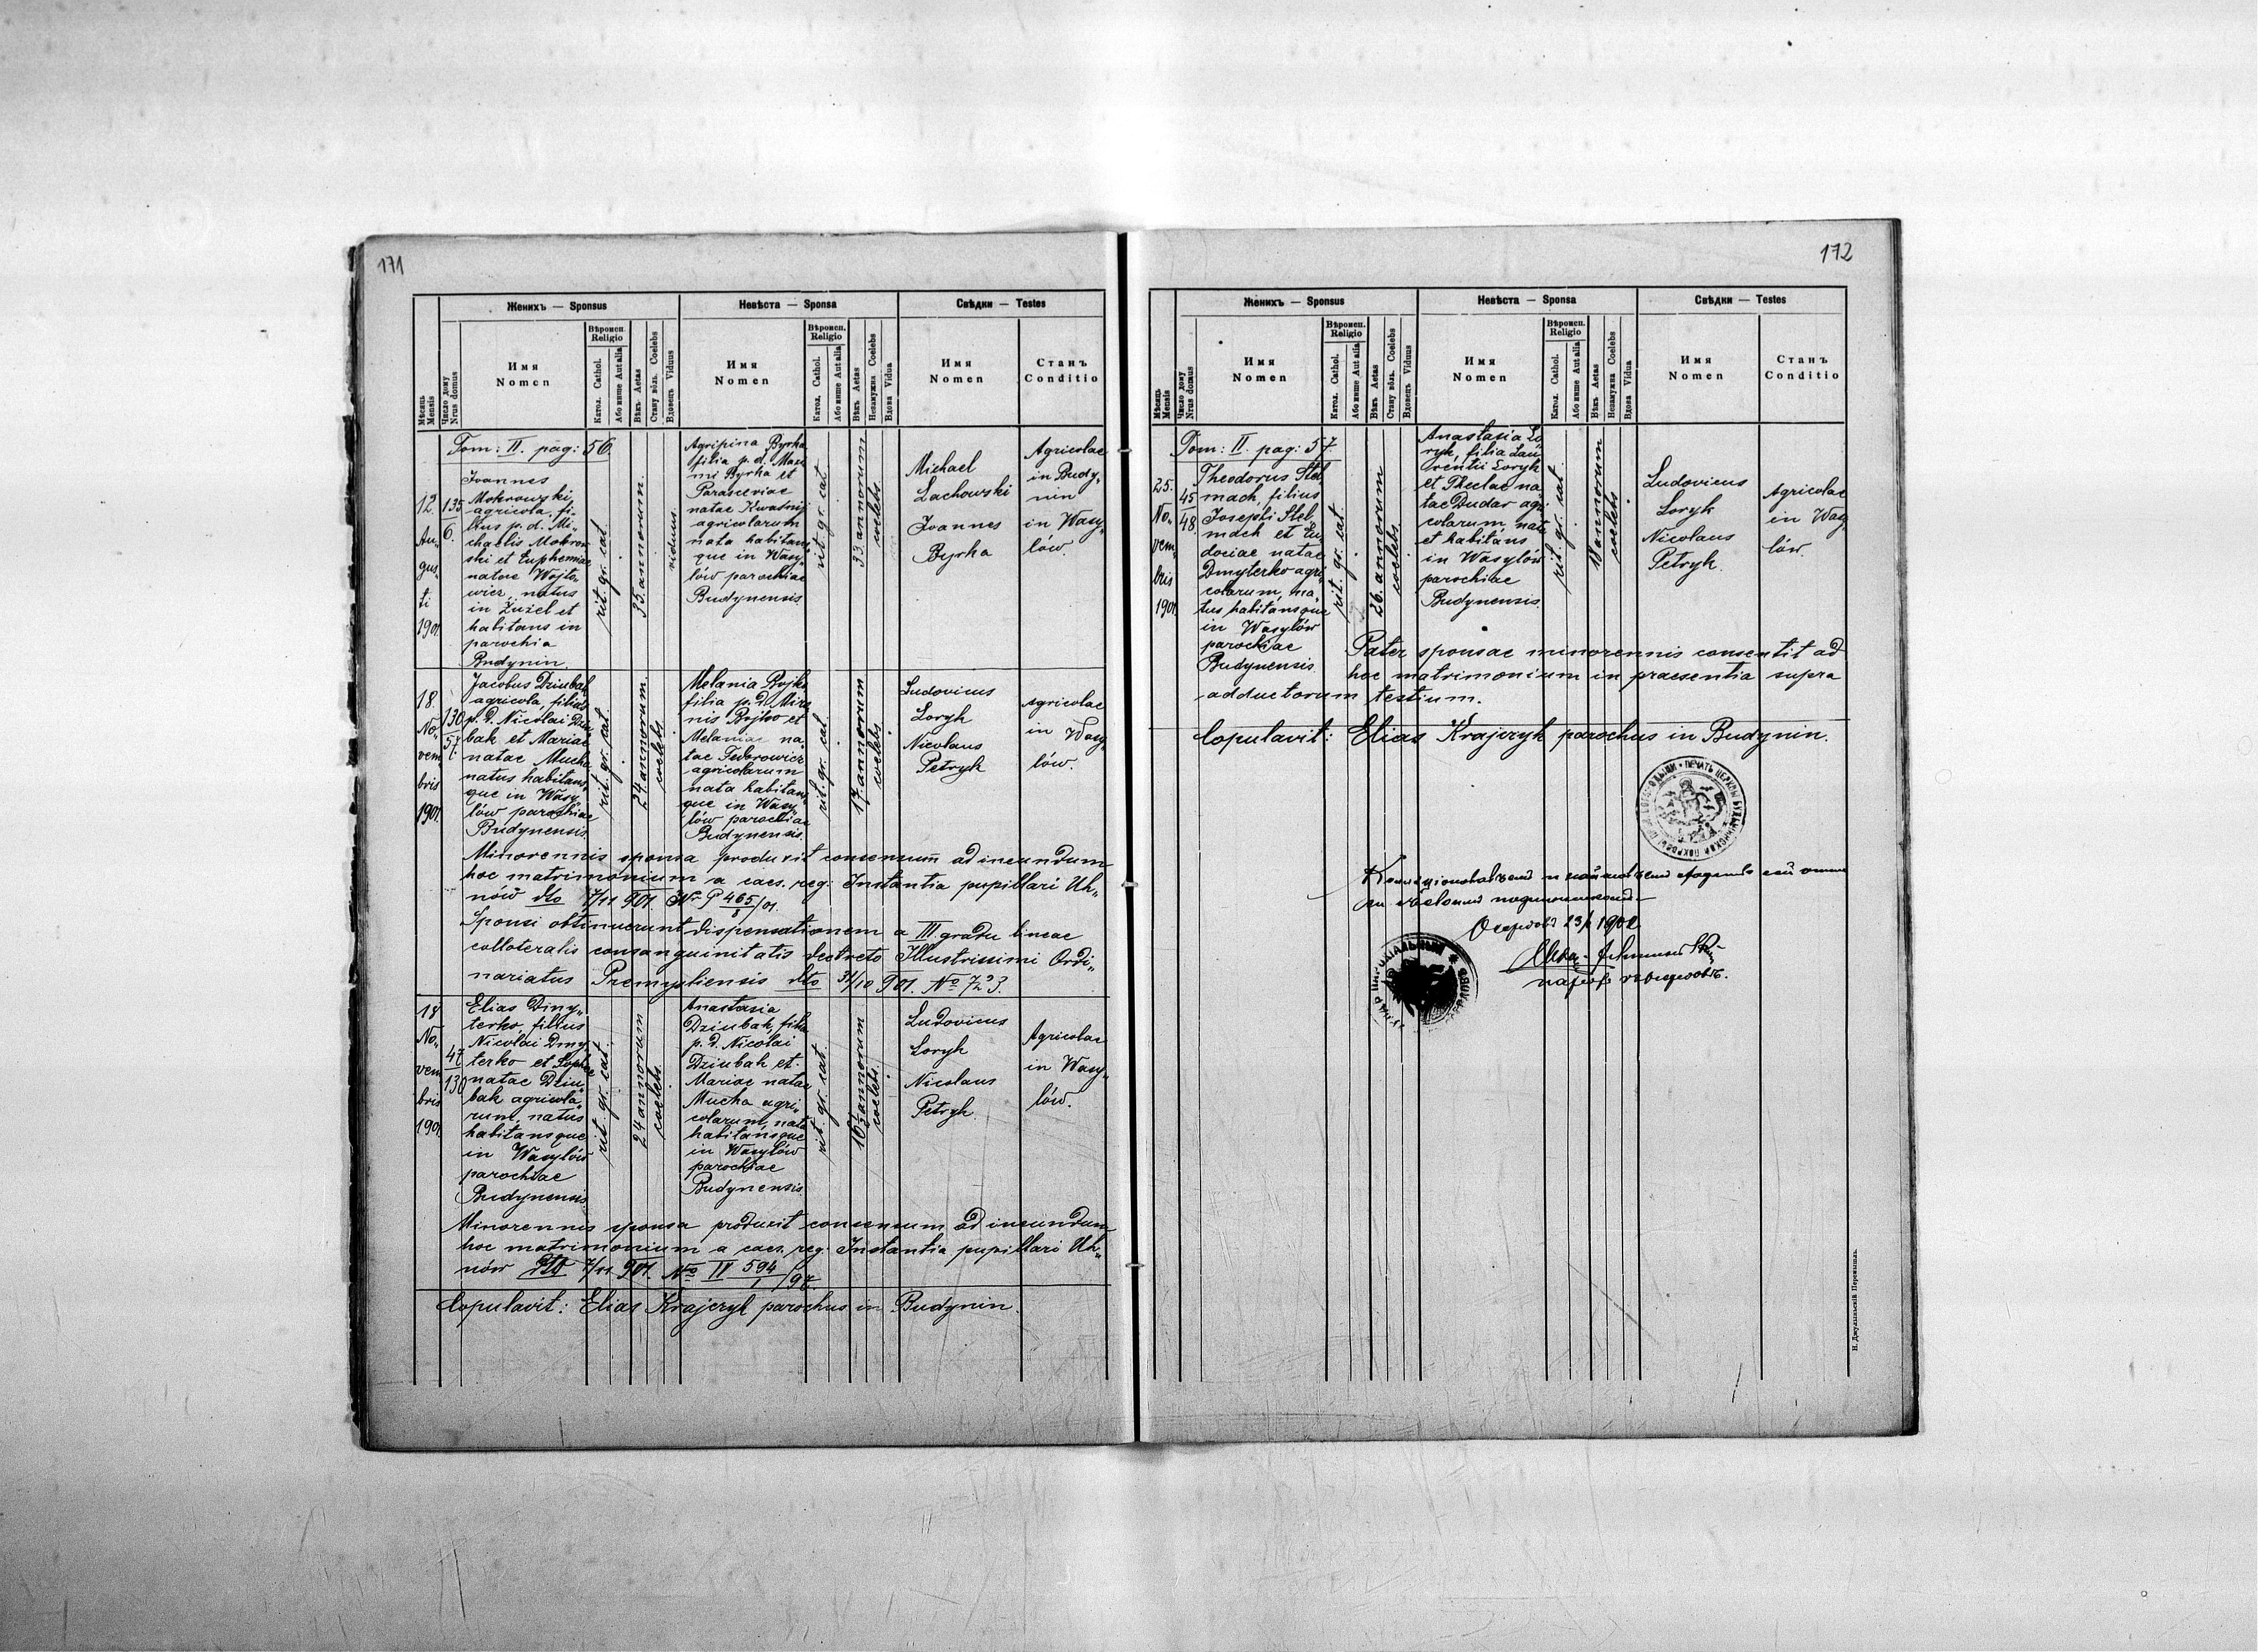 171
Женихъ — Sponsus
Невѣста — Sponsa
Свѣдки — Testes
Мѣсяць Mensis
Число дому Nrus domus
Имя
Nomen
Вѣроисп.
Religio
Катол. Cathol.
Або инше Aut alia
Вѣкъ Aetas
Стану вôль. Coelebs
Вдовець Viduus
Имя
Nomen
Вѣроисп.
Religio
Катол. Cathol.
Або инше Aut alia
Вѣкъ Aetas
Незамужна Coelebs
Вдова Vidua
Имя
Nomen
Станъ
Conditio
Tom: II. pag: 56.
12.
Au„
gus„
ti
1901
135
6.
Joannes
Mokrowski,
agricola, fi„
lius p. d. Mi„
chaelis Mokrow
ski et Euphemiae
natae Wojto„
wicz, natus
in Żużel et
habitans in
parochia
Budynin.
rit. gr. cat.
35. annorum.
viduus.
Agripina Byrka
filia p. d. Maxi
mi Byrka et
Parasceviae
natae Kwaśnij
agricolarum
nata habitans„
que in Wasy„
lów parochiae
Budynensis
rit. gr. cat
33 annorum
coelebs.
Michael
Lachowski
Joannes
Byrka
Agricolae
in Budy„
nin
in Wasy„
lów.
18.
No„
vem
bris
1901
130
57.
Jacobus Dziubak
agricola, filius
p. d. Nicolai Dziu
bak et Mariae
natae Mucha
natus habitans„
que in Wasy„
lów parochiae
Budynensis.
rit. gr. cat.
24. annorum.
coelebs.
Melania Bojko
filia p. d. Miro
nis Bojko et
Melaniae na„
tae Fedorowicz
agricolarum
nata habitans„
que in Wasy„
lów parochiae
Budynensis.
rit. gr. cat.
17. annorum
coelebs.
Ludovicus
Loryk
Nicolaus
Petryk
Agricolae
in Wasy„
lów.
Minorennis sponsa produxit consensum ad ineundum
hoc matrimonium a caes. reg. Instantia pupillari Uh„
nów dto 7/11 901. Nr P 465/8/01.
Sponsi obtinuerunt dispensationem a III. gradu lineae
collateralis consanguinitatis decreto Illustrissimi Ordi„
nariatus Premysliensis dto 31/10 901. No
18
No„
vem
bris
1901
47
130
Elias Dmy„
terko, filius
Nicolai Dmy
terko et Sophiae
natae Dziu„
bak agricola„
rum, natus
habitansque
in Wasylów
parochiae
Budynensis.
rit. gr. cat.
24 annorum
coelebs.
Anastasia
Dziubak, filia
p. d. Nicolai
Dziubak et
Mariae natae
Mucha agri„
colarum, nata
habitansque
in Wasylów
parochiae
Budynensis.
rit. gr. cat.
16½ annorum
coelebs.
Ludovicus
Loryk
Nicolaus
Petryk.
Agricolae
in Wasy„
lów.
Minorennis sponsa produxit consensum ad ineundum
hoc matrimonium a caes. reg. Instantia pupillari Uh„
nów dto 7/11 901. No II 594/1/97.
Copulavit: Elias Krajczyk parochus in Budynin.
172
Женихъ — Sponsus
Невѣста — Sponsa
Свѣдки — Testes
Мѣсяць Mensis
Число дому Nrus domus
Имя
Nomen
Вѣроисп.
Religio
Катол. Cathol.
Або инше Aut alia
Вѣкъ Aetas
Стану вôль. Coelebs
Вдовець Viduus
Имя
Nomen
Вѣроисп.
Religio
Катол. Cathol.
Або инше Aut alia
Вѣкъ Aetas
Незамужна Coelebs
Вдова Vidua
Имя
Nomen
Станъ
Conditio
Tom: II. pag: 57.
25.
No„
vem
bris
1901
45
48.
Theodorus Stel„
mach, filius
Josephi Stel„
mach et Eu„
dociae natae
Dmyterko agri„
colarum, na„
tus habitansque
in Wasylów
parochiae
Budynensis
rit. gr. cat.
26. annorum
coelebs.
Anastasia Lo„
ryk, filia Lau„
rentii Loryk
et Theclae na„
tae Dudar agri„
colarum, nata
et habitans
in Wasylów
parochiae
Budynensis.
rit. gr. cat.
18 annorum
coelebs.
Ludovicus
Loryk
Nicolaus
Petryk.
Agricolae
in Wasy„
lów.
Pater sponsae minorennis consentit ad
hoc matrimonium in praesentia supra
adductorum testium.
Copulavit: Elias Krajczyk parochus in Budynin.
ПЕЧАТЬ ЦЕРКВИ
23/1 1902
Н. Джулыньскій Перемышль.